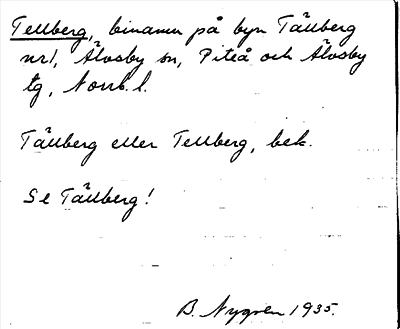 Tellberg, binamn på byn Tällberg
nr1, Älvsby sn, Piteå och Älvsby
tg, Norrb. l.
Tällberg eller Tellberg, bek.
Se Tällberg!
B. Nygren 1935.